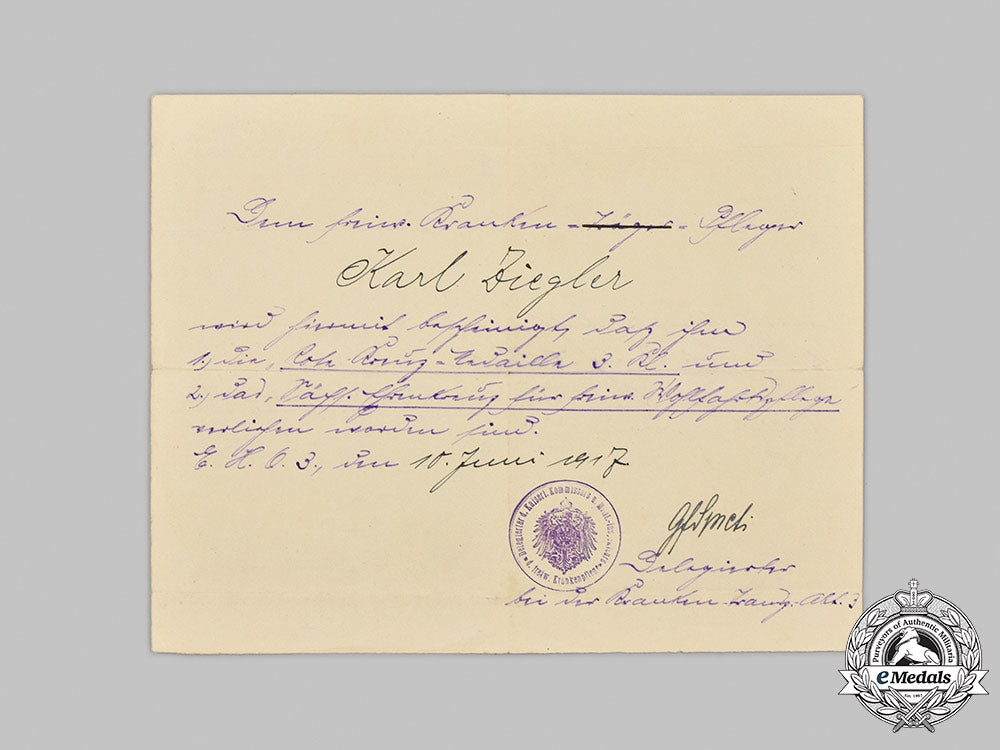 Dem freiw. Kranken - Träger - Pfleger
Karl Ziegler
wird hiermit bescheinigt, daß ihm
1.) die „Rote Kreuz-Medaille 3. Kl. und
2.) das „Sächs. Ehrenkreuz für freiw. Wohlfahrtspflege
verliehen worden sind.
E. H. O. 3., den 10. Juni 1917
Delegierter d. Kaiserl. Kommissars u. Milit.-Insp.
d. freiw. Krankenpflege
Delegierter
bei der Kranken-Transp. Abt. 3
Purveyors of Authentic Militaria
eMedals
Est. 1967